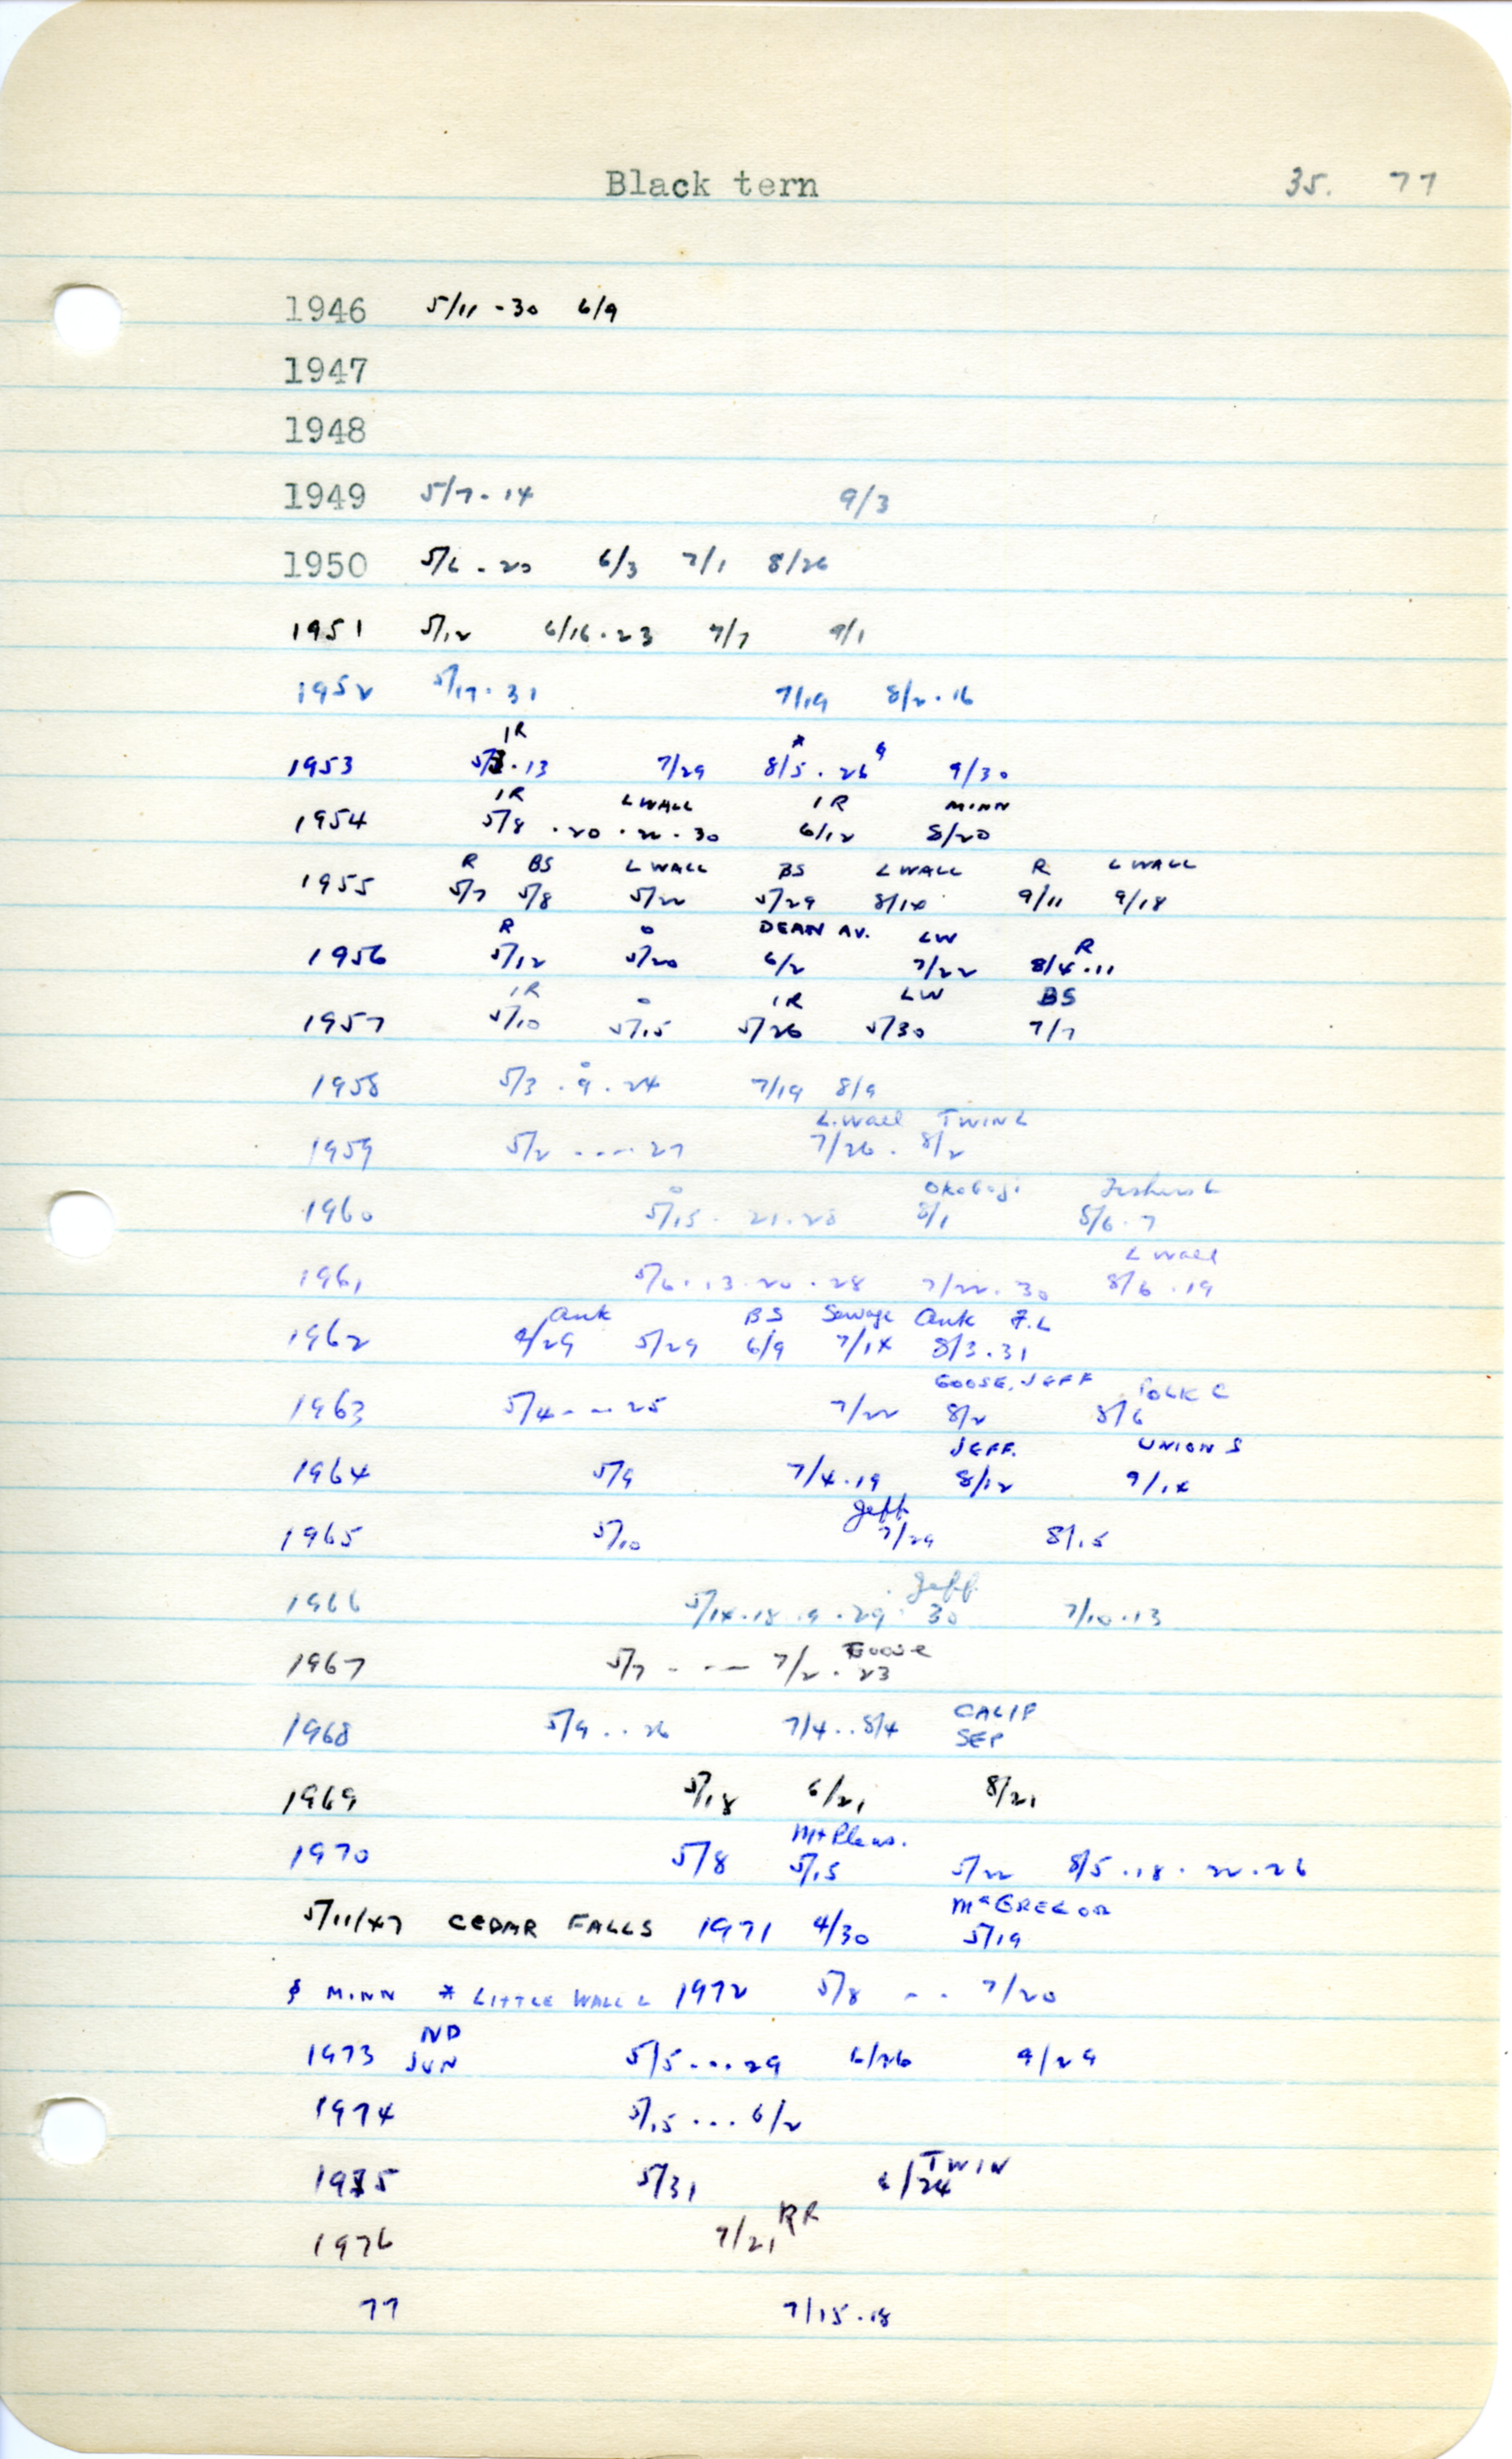 Black tern 35. 77
1946 5/11 - 30 6/9
1947
1948
1949 5/7 - 14 9/3
1950 5/6 - 20 6/3 7/1 8/26
1951 5/12 6/16 . 23 7/7 9/1
1952 5/17 . 31 7/19 8/2 . 16
IR *
1953 . 13 7/29 8/5 . 26 9/30
IR L WALL IR MINN
1954 5/8 . 20 . 22 . 30 6/12 8/20
R BS L WALL BS L WALL R L WALL
1955 5/7 5/8 5/22 5/29 8/14 9/11 9/18
R O DEAN AV. LW R
1956 5/12 5/20 6/2 7/22 8/4 . 11
IR O IR LW BS
1957 5/10 5/15 5/26 5/30 7/7
O
1958 5/3 . 9 . 24 7/19 8/9
L. Wall TWIN L
1959 5/2 - - - - 27 7/26 . 8/2
O Okoboji Fishers L
1960 5/15 . 21 . 28 8/1 8/6 . 7
L Wall
1961 5/6 . 13 . 20 . 28 7/22 . 30 8/6 . 19
Ank BS Sewage Ank F.L
1962 4/29 5/29 6/9 7/14 8/3 . 31
GOOSE, JEFF POLK C
1963 5/4 - - - 25 7/22 8/2 8/6
JEFF. UNION S
1964 5/9 7/4 . 19 8/12 9/14
Jeff.
1965 5/10 7/29 8/15
Jeff.
1966 5/14 . 18 . 9 . 29 . 30 7/10 . 13
Goose
1967 5/7 - - - 7/2 . 23
CALIF
1968 5/9 . . 26 7/4 . . 8/4 SEP
1969 5/18 6/21 8/21
Mt Pleas.
1970 5/8 5/15 5/22 8/5 . 18 . 22 . 26
McGREGOR
5/11/47 CEDAR FALLS 1971 4/30 5/19
MINN * LITTLE WALL L 1972 5/8 - - 7/20
ND
1973 JUN 5/5 . . . 29 6/26 9/29
1974 5/15 . . . 6/2
TWIN
1975 5/31 6/24
RR
1976 7/21
77 7/15 . 18